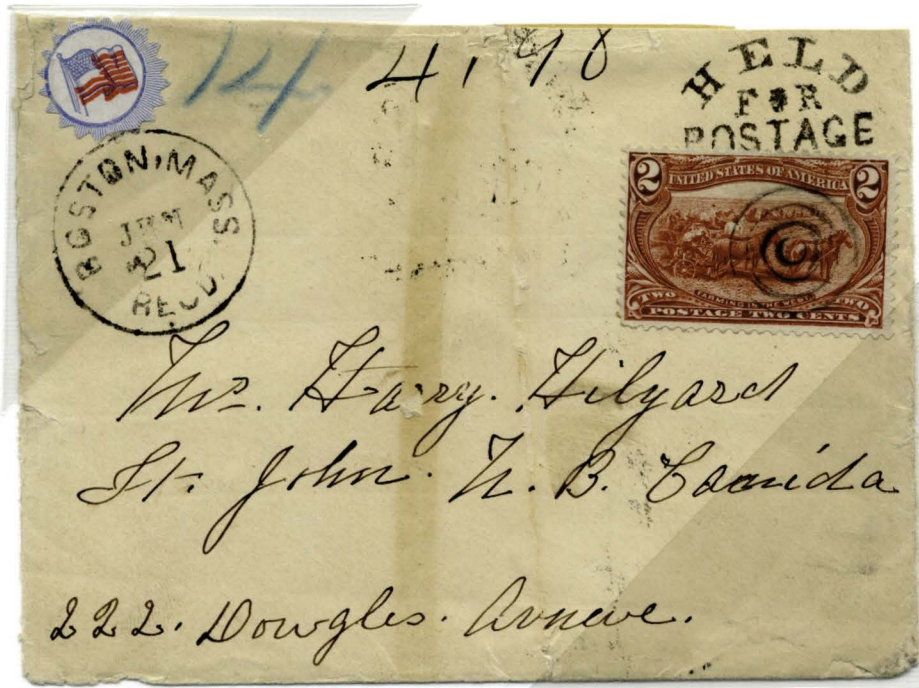 14 4, 98
HELD
FOR
POSTAGE
BOSTON, MASS.
JUN
21
REC'D.
2 UNITED STATES OF AMERICA 2
TWO FARMING IN THE WEST. TWO
POSTAGE TWO CENTS
Mr. Harry. Hilyard
St. John. N. B. Cannida
222. Dowgles. Avneve.